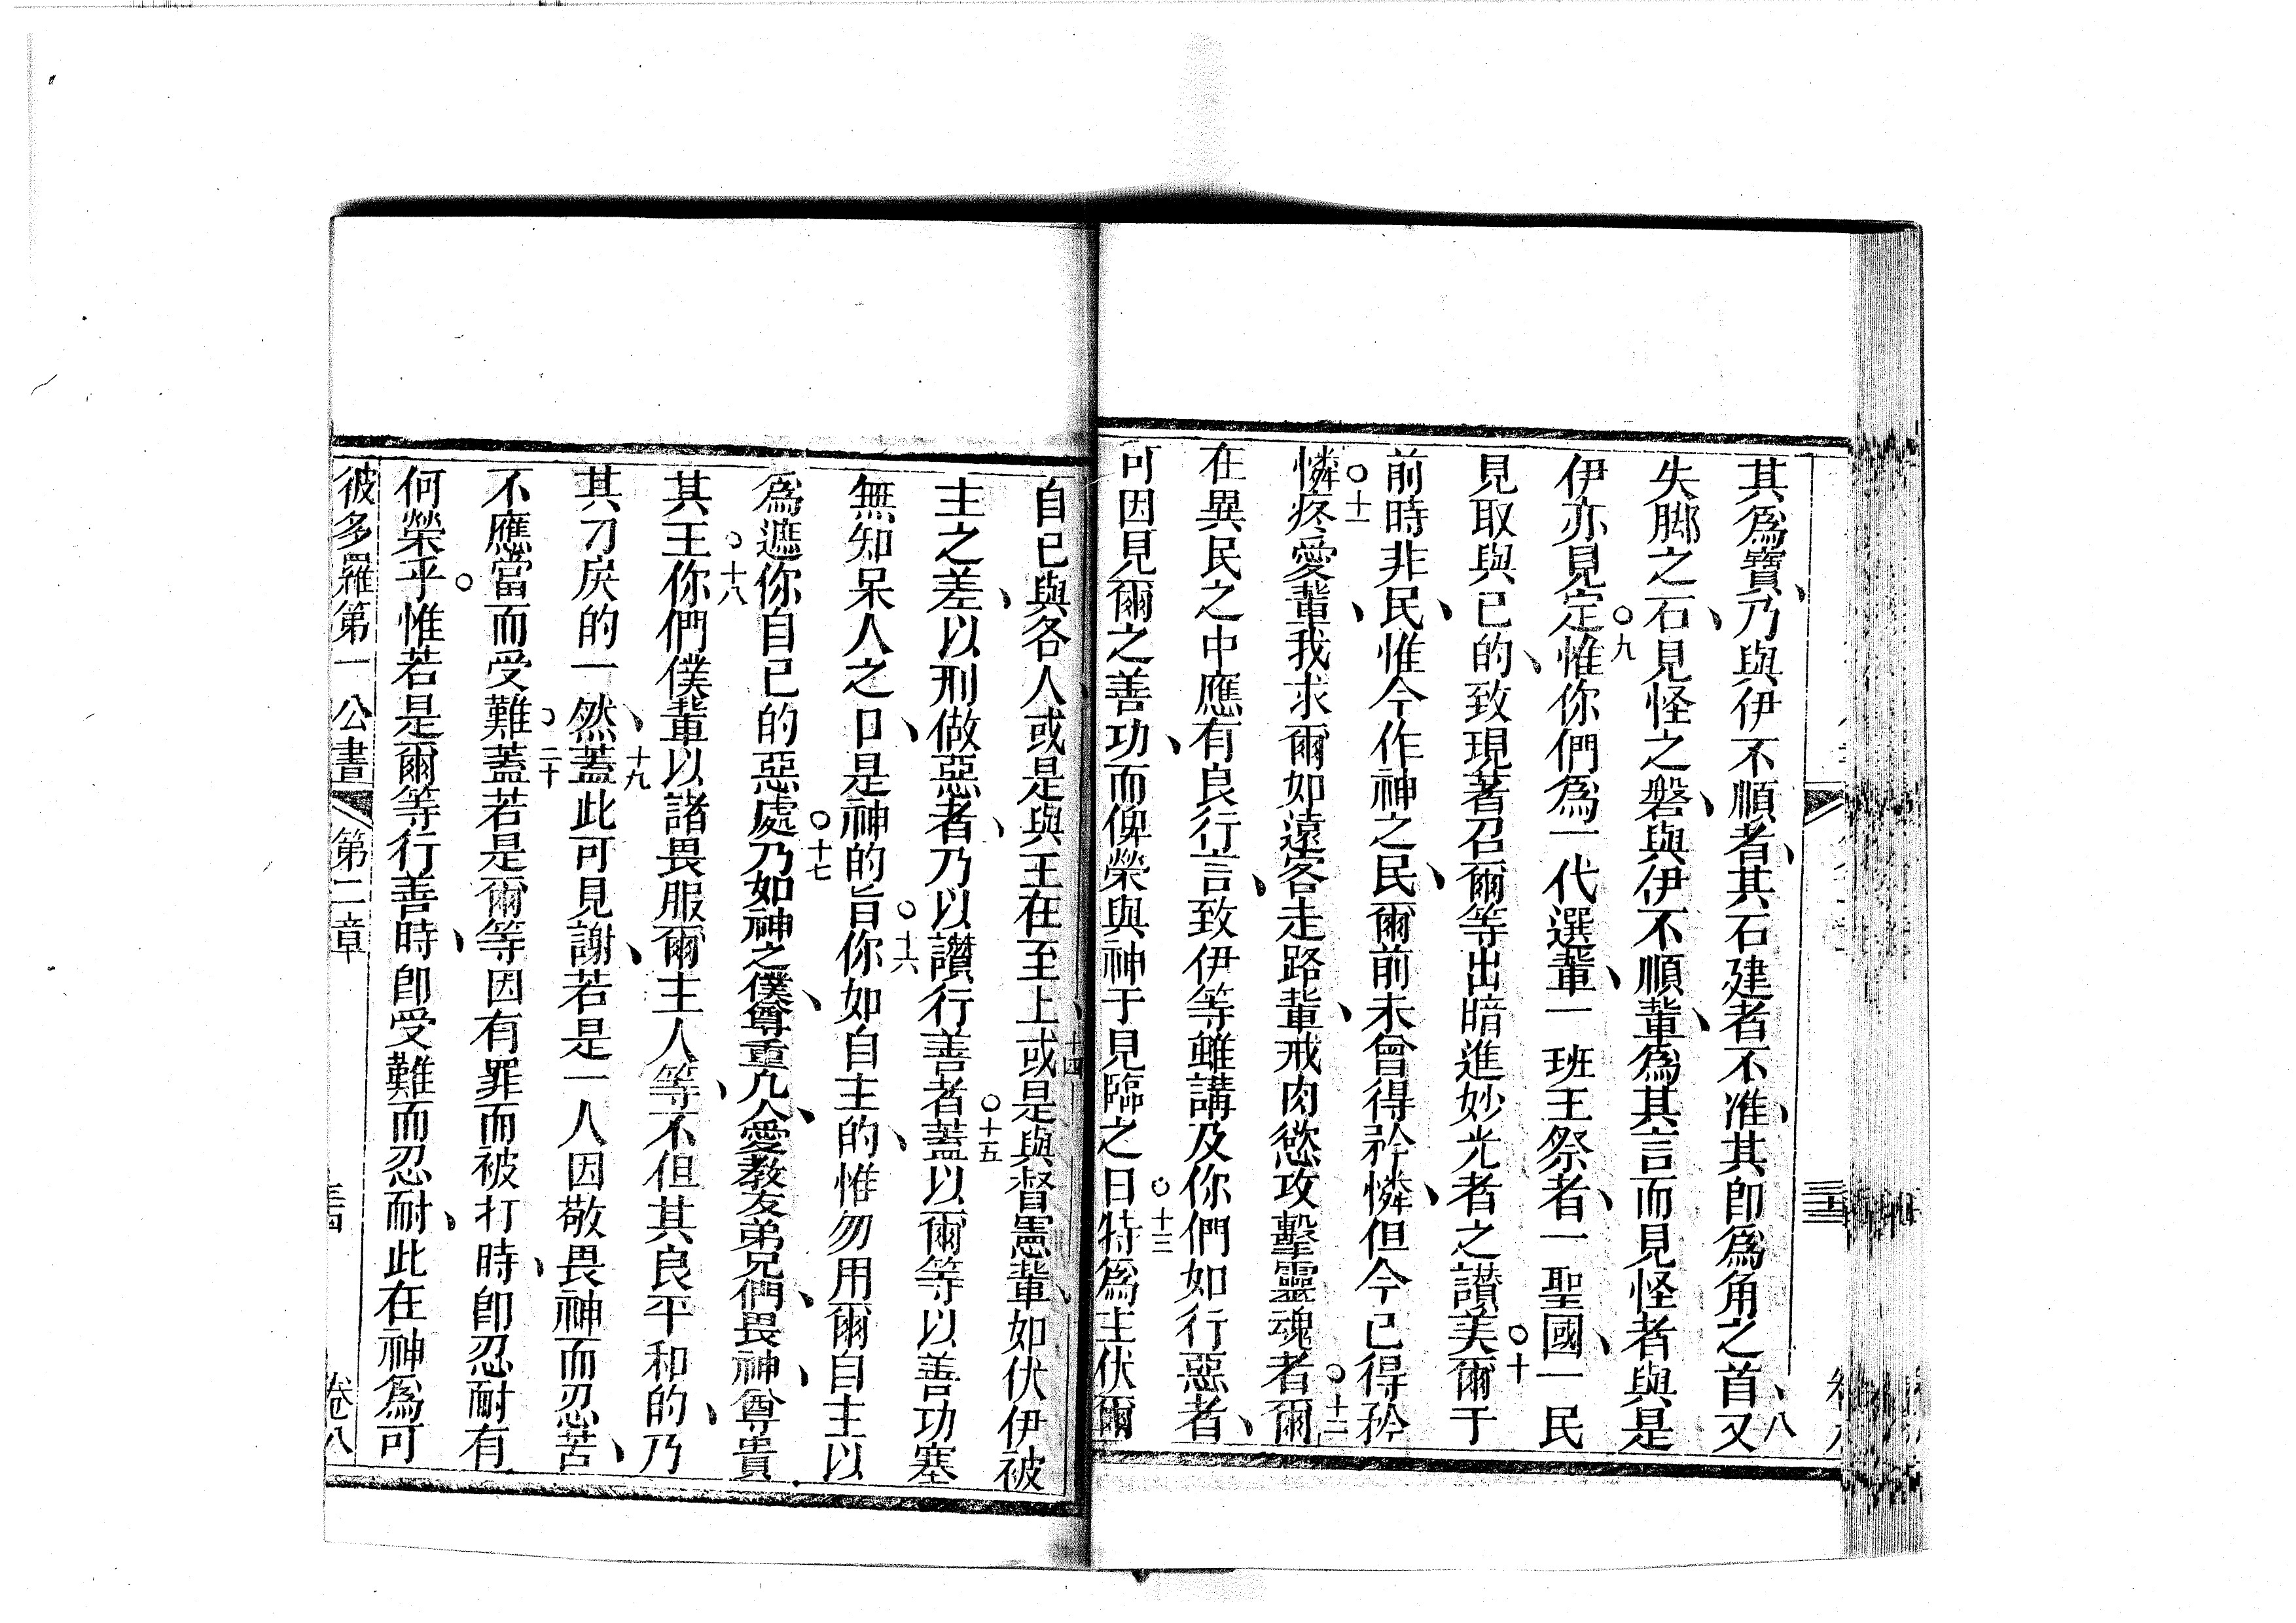 其爲寶、乃與伊不順者、其石建者不准、其卽爲角之首、八又
失脚之石、見怪之磐、與伊不順輩、爲其言而見怪者與是
伊亦見定○九惟你們爲一代選輩、一班王祭者、一聖國、一民
見取與已的、致現著召爾等出暗進妙光者之讃美○十爾于
前時非民、惟今作神之民、爾前未曾得矜憐、但今已得矜
憐○十一疼愛輩、我求爾如遠客走路輩、戒肉慾攻擊靈魂者○十二爾
在異民之中應有良行言、致伊等雖講及你們如行惡者、
可因見爾之善功、而俾榮與神于見臨之日○十三特爲主伏爾
自已與各人、或是與王在至上、十四或是與督憲輩、如伏伊被
主之差、以刑做惡者、乃以讃行善者○十五蓋以爾等以善功塞
無知呆人之口、是神的旨○十六你如自主的、惟勿用爾自主以
爲遮你自已的惡處○十七乃如神之僕、尊重凡人、愛教友弟兄們、畏神、尊貴
其王○十八你們僕輩以諸畏服爾主人等、不但其良平和的、乃
其刁戾的一然、十九蓋此可見謝、若是一人因敬畏神而忍苦、
不應當而受難○二十蓋若是爾等因有罪而被打時、卽忍耐有
何榮乎○惟若是爾等行善時、卽受難而忍耐、此在神爲可
彼多羅第一公書 第二章 卷八